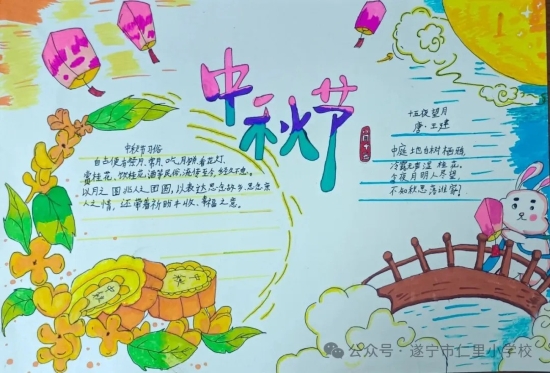 中秋节
八月十五
中秋节习俗
自古便有祭月、赏月、吃月饼、看花灯、
赏桂花、饮桂花酒等民俗,流传至今,经久不息。
以月之圆兆人之团圆,以表达思念故乡,思念亲
人之情,还带着祈盼丰收、幸福之意。
十五夜望月
唐·王建
中庭地白树栖鸦,
冷露无声湿桂花。
今夜月明人尽望,
不知秋思落谁家?
中秋
公众号·遂宁市仁里小学校